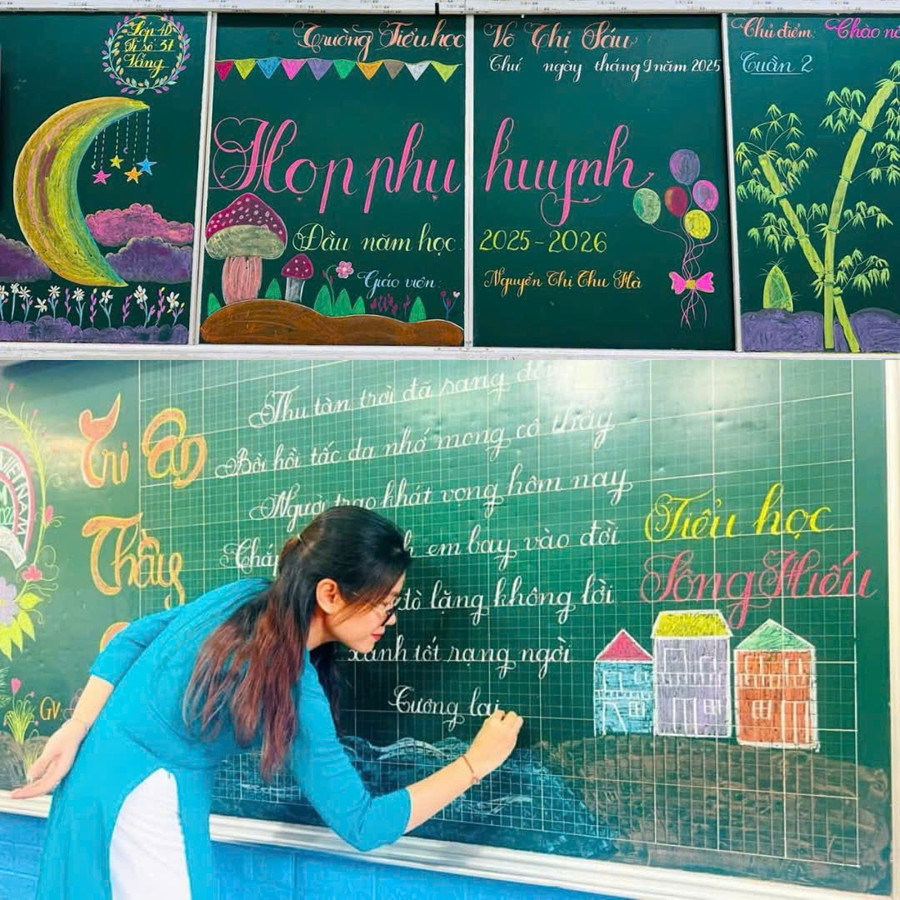 Lớp 4D
Sĩ số: 37
Vắng
Trường Tiểu học Võ Thị Sáu
Thứ ngày tháng 9 năm 2025
Họp phụ huynh
Đầu năm học 2025-2026
Giáo viên: Nguyễn Thị Thu Hà
Chủ điểm: Chào
Tuần 2
VIETNAM
Tri Ân
Thầy
GV
Thu tàn trời đã sang
Bồi hồi tấc dạ nhớ mong cô thầy
Người trao khát vọng hôm nay
em bay vào đời
đò lặng không lời
xanh tốt rạng ngời
Tương lai
Tiểu học
Sông Hiếu